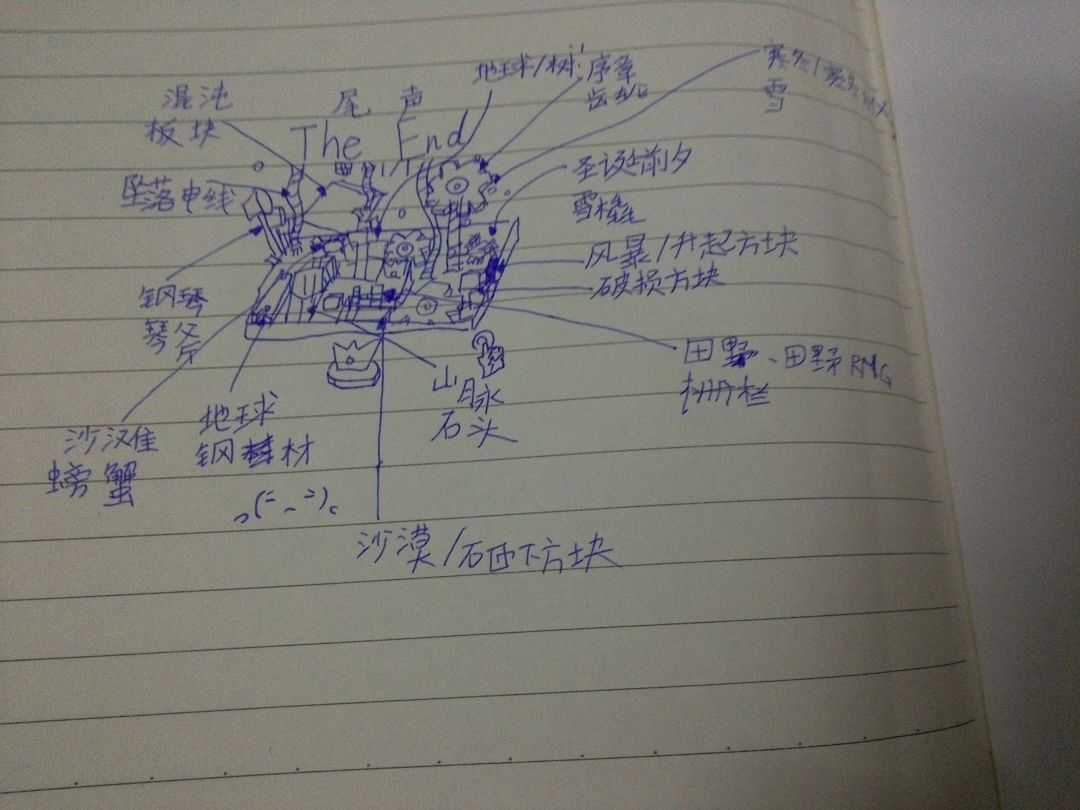 混沌
板块
尾声
The End
地球/树
序章
齿轮
雪
坠落电线
圣诞前夕
雪橇
风暴/升起方块
破损方块
钢琴
琴
田野、田野RMG
栅栏
山脉
石头
地球
钢 材
沙
螃蟹
沙漠/石 下方块